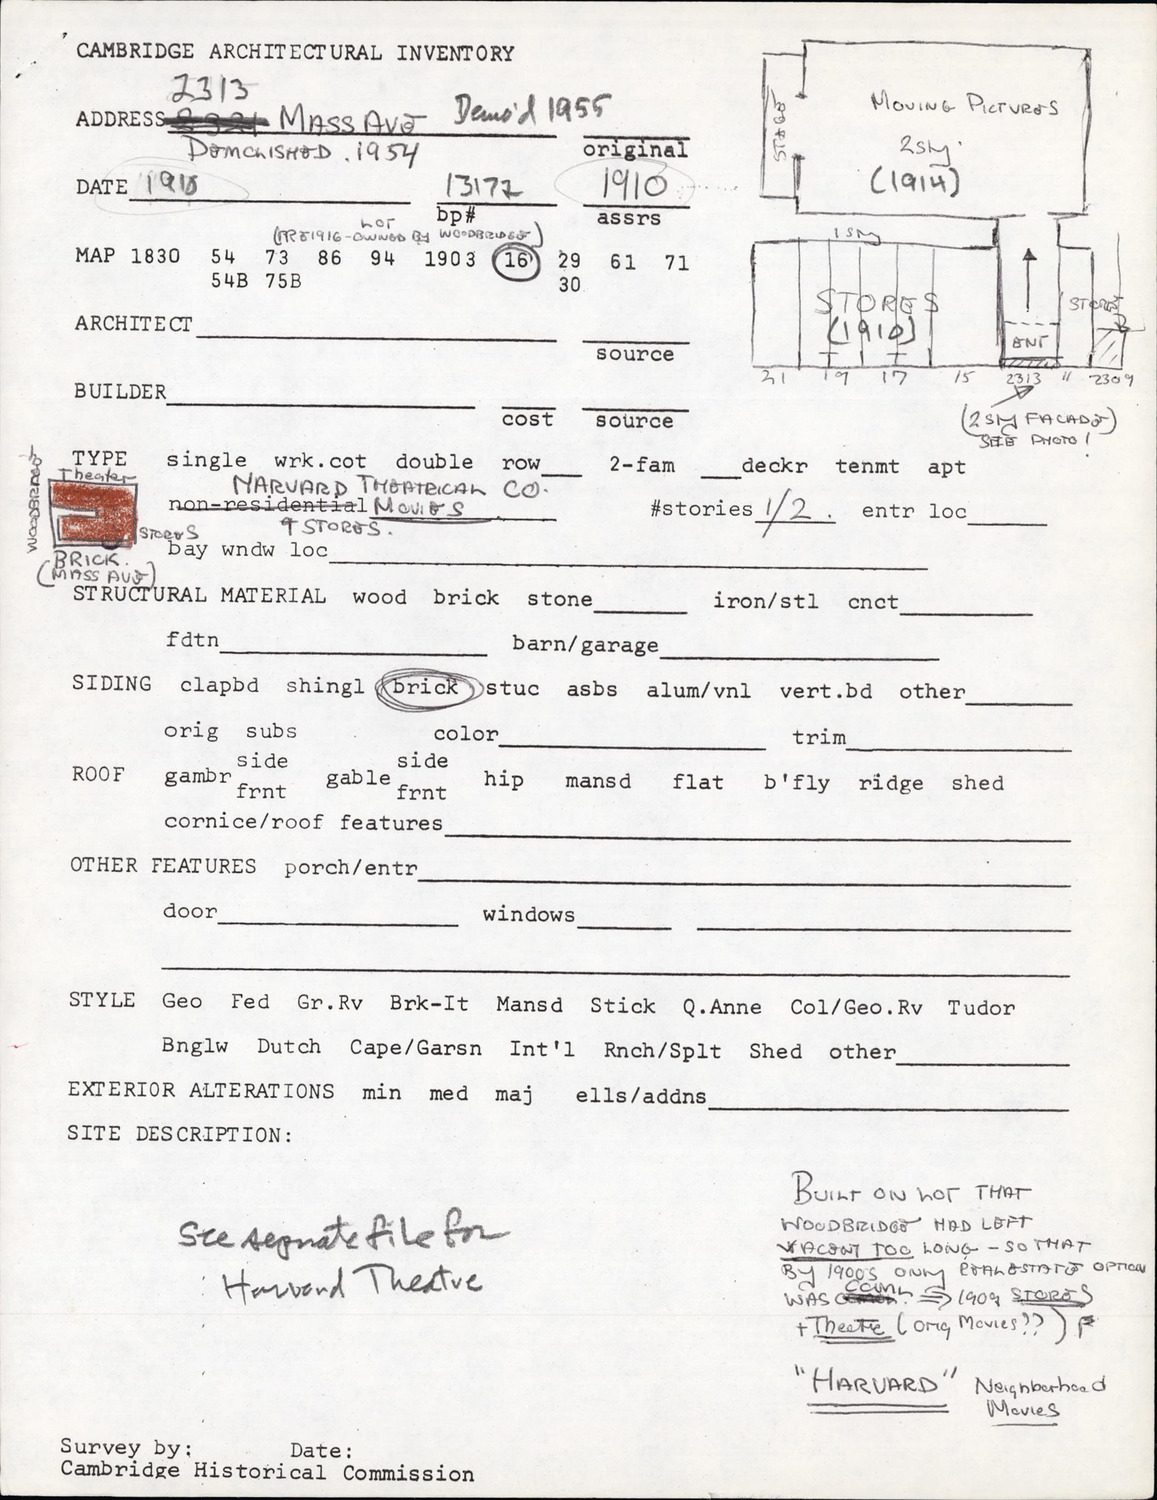 CAMBRIDGE ARCHITECTURAL INVENTORY
2313
ADDRESS MASS AVE Demo'd 1955
DEMOLISHED . 1954 original
DATE 1910 13172 1910
bp# assrs
LOT
(PRE 1916 - OWNED BY WOODBRIDGE)
MAP 1830 54 73 86 94 1903 16 29 61 71
54B 75B 30
ARCHITECT
source
BUILDER
cost source
TYPE single wrk.cot double row 2-fam deckr tenmt apt
HARVARD THEATRICAL CO.
non-residential MOVIES #stories 1/2. entr loc
9 STORES.
bay wndw loc
Theater
WOODBRIDGE
STORES
BRICK.
(MASS AVE)
STRUCTURAL MATERIAL wood brick stone iron/stl cnct
fdtn barn/garage
SIDING clapbd shingl brick stuc asbs alum/vnl vert.bd other
orig subs color trim
side side
ROOF gambr gable hip mansd flat b'fly ridge shed
frnt frnt
cornice/roof features
OTHER FEATURES porch/entr
door windows
STYLE Geo Fed Gr.Rv Brk-It Mansd Stick Q.Anne Col/Geo.Rv Tudor
Bnglw Dutch Cape/Garsn Int'l Rnch/Splt Shed other
EXTERIOR ALTERATIONS min med maj ells/addns
SITE DESCRIPTION:
STAGE
MOVING PICTURES
2 Sty.
(1914)
1 Sty
STORES
(1910)
STORES
ENT
21 19 17 15 2313 11 2309
(2 Sty FACADE)
SEE PHOTO!
See separate file for
Harvard Theatre
BUILT ON LOT THAT
WOODBRIDGE HAD LEFT
VACENT TOO LONG - SO THAT
BY 1900S ONLY REAL ESTATE OPTION
WAS COML. ⇒ 1909 STORES
+ Theatre (orig Movies??)
"HARVARD" Neighborhood
Movies
Survey by: Date:
Cambridge Historical Commission